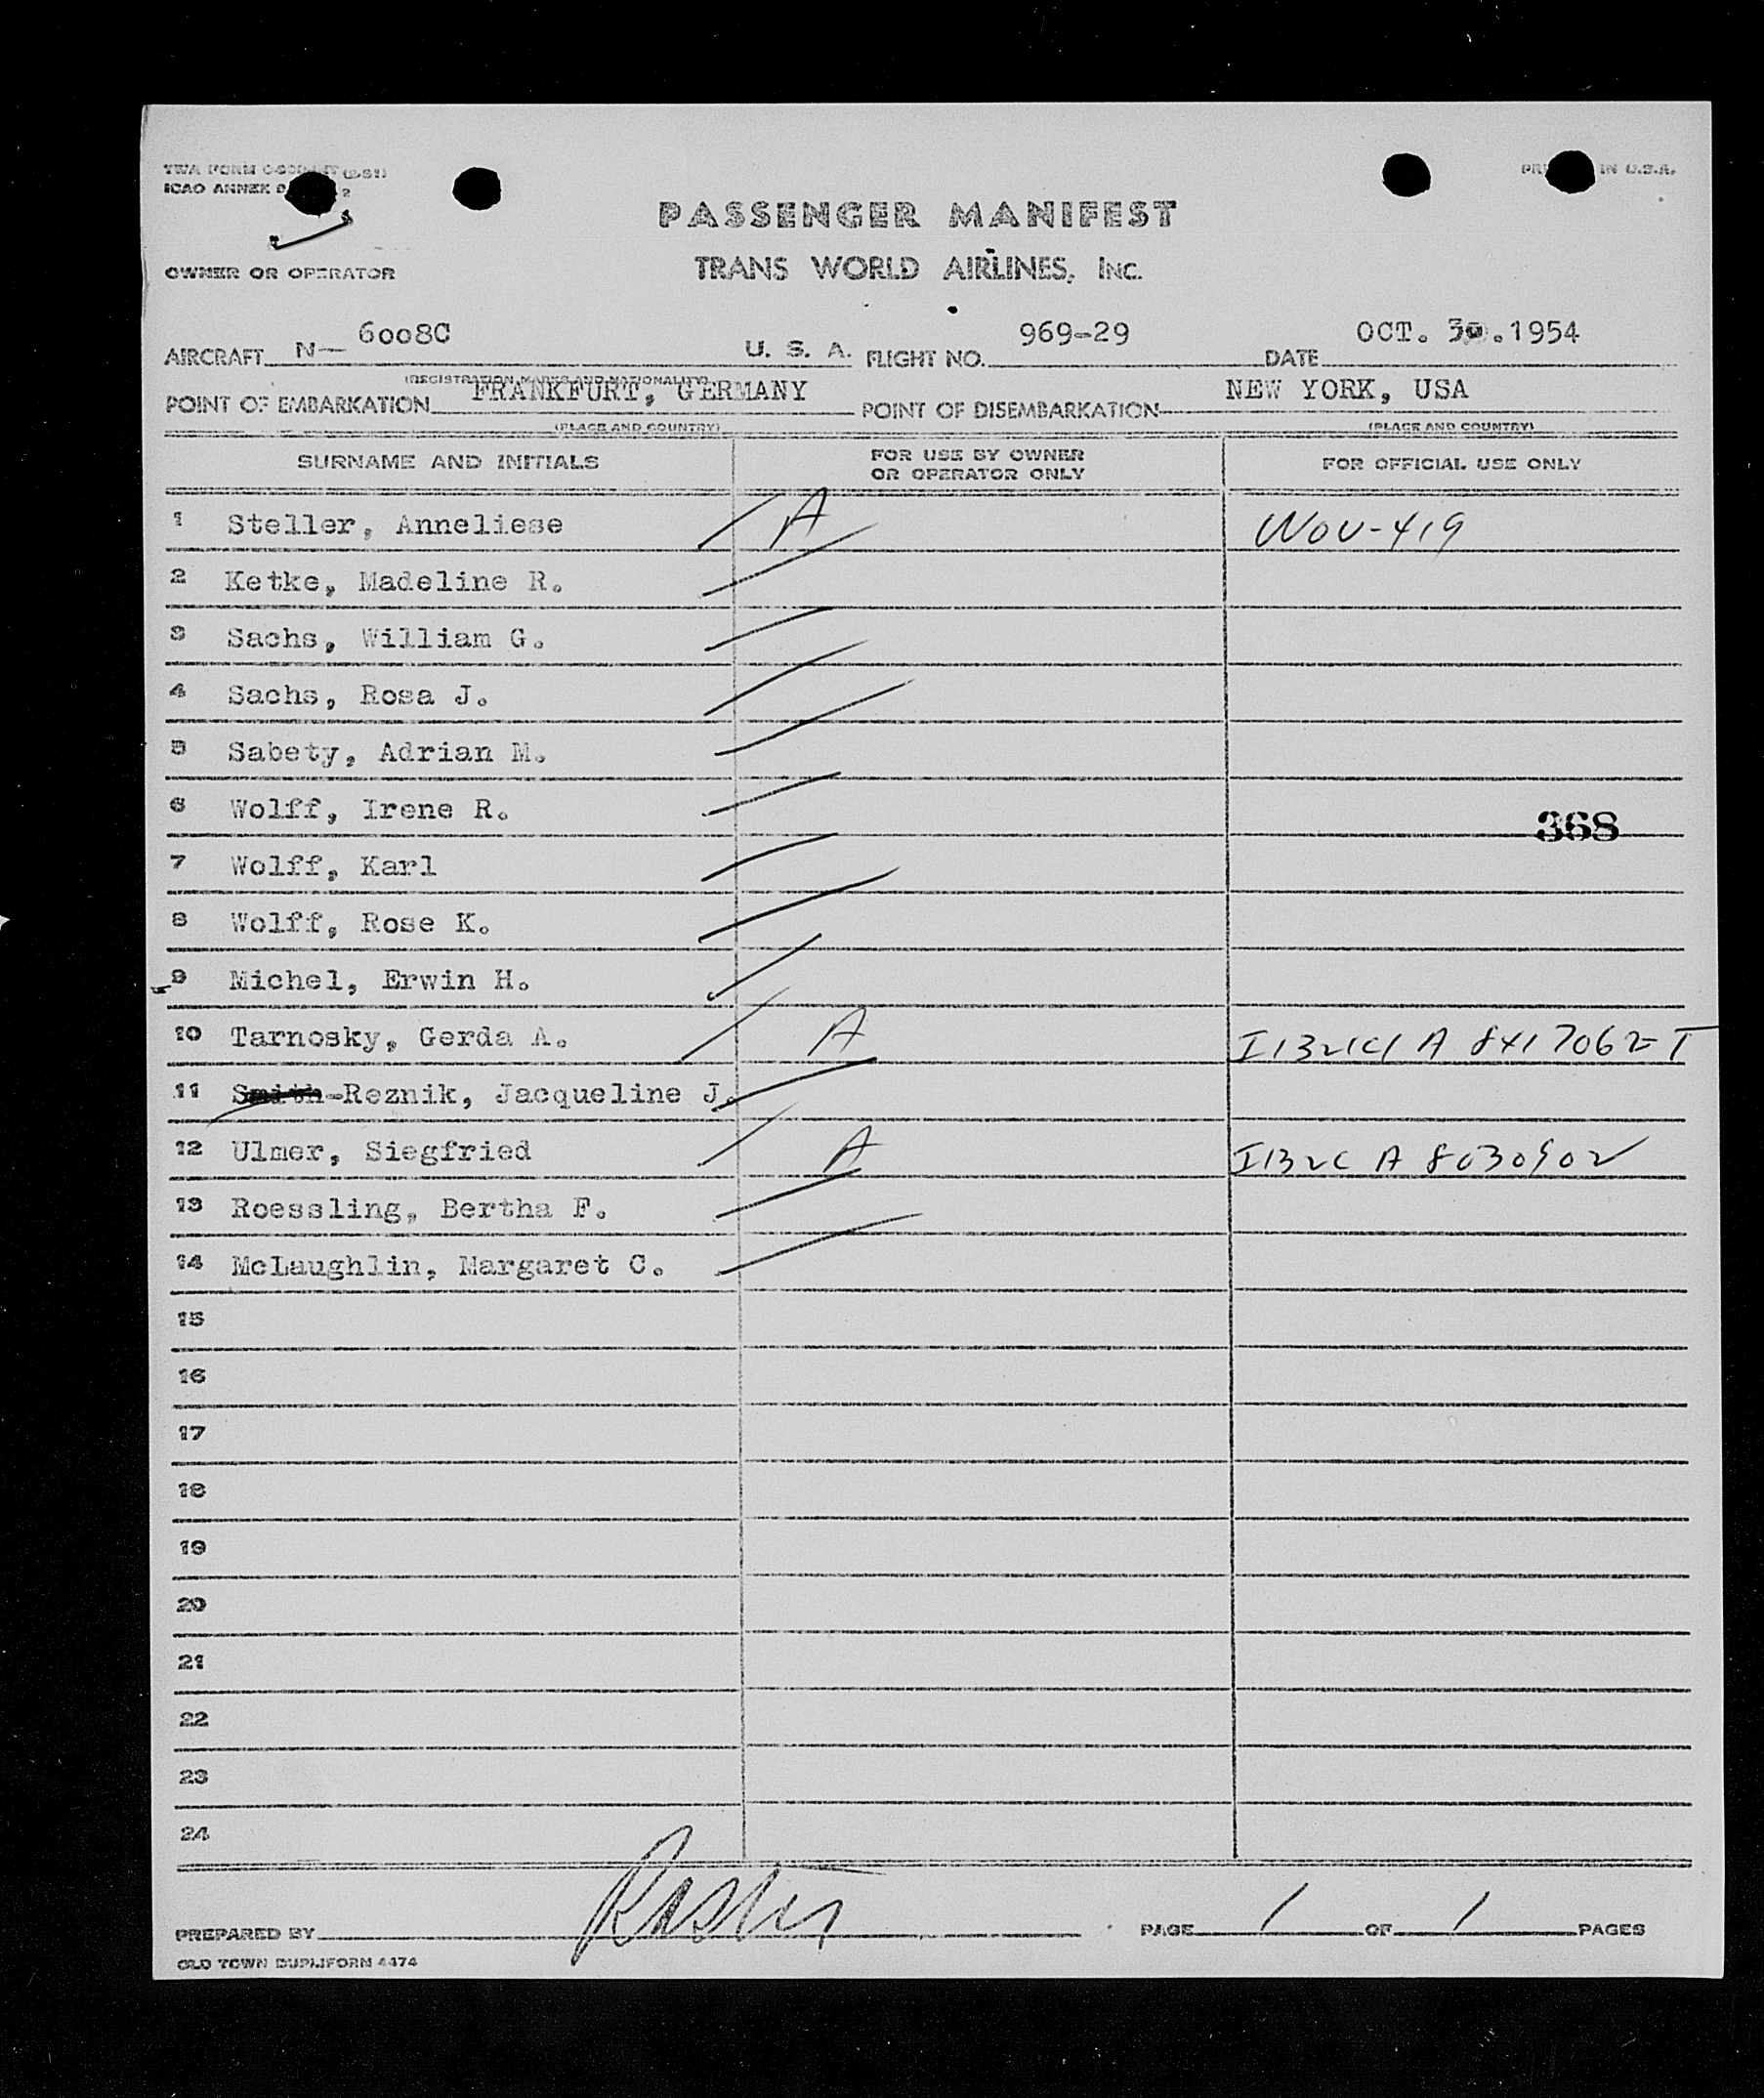 TWA FORM
ICAO ANNEX 9 2
PRINTED IN U.S.A.
PASSENGER MANIFEST
OWNER OR OPERATOR TRANS WORLD AIRLINES, INC.
AIRCRAFT N- 6008C U. S. A. FLIGHT NO. 969-29 DATE OCT. 30.1954
(REGISTRATION MARKS AND NATIONALITY)
POINT OF EMBARKATION FRANKFURT, GERMANY POINT OF DISEMBARKATION NEW YORK, USA
(PLACE AND COUNTRY) (PLACE AND COUNTRY)
SURNAME AND INITIALS FOR USE BY OWNER OR OPERATOR ONLY FOR OFFICIAL USE ONLY
1 Steller, Anneliese A Wov-419
2 Ketke, Madeline R.
3 Sachs, William G.
4 Sachs, Rosa J.
5 Sabety, Adrian M.
6 Wolff, Irene R. 368
7 Wolff, Karl
8 Wolff, Rose K.
9 Michel, Erwin H.
10 Tarnosky, Gerda A. A
11 Smith-Reznik, Jacqueline J.
12 Ulmer, Siegfried A
13 Roessling, Bertha F.
14 McLaughlin, Margaret C.
15
16
17
18
19
20
21
22
23
24
PREPARED BY PAGE 1 OF 1 PAGES
OLD TOWN DUPLIFORM 4474